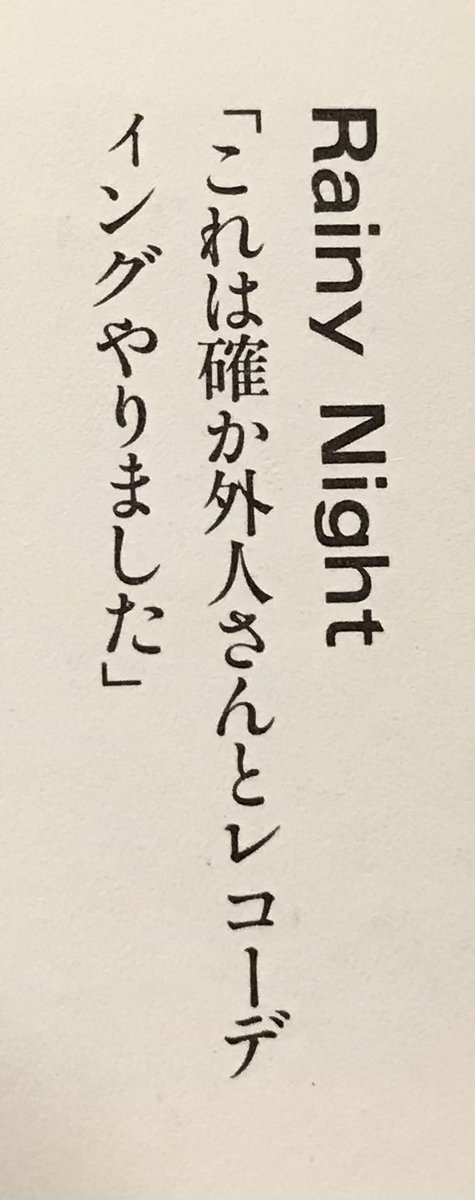 Rainy Night
「これは確か外人さんとレコーデ
ィングやりました」